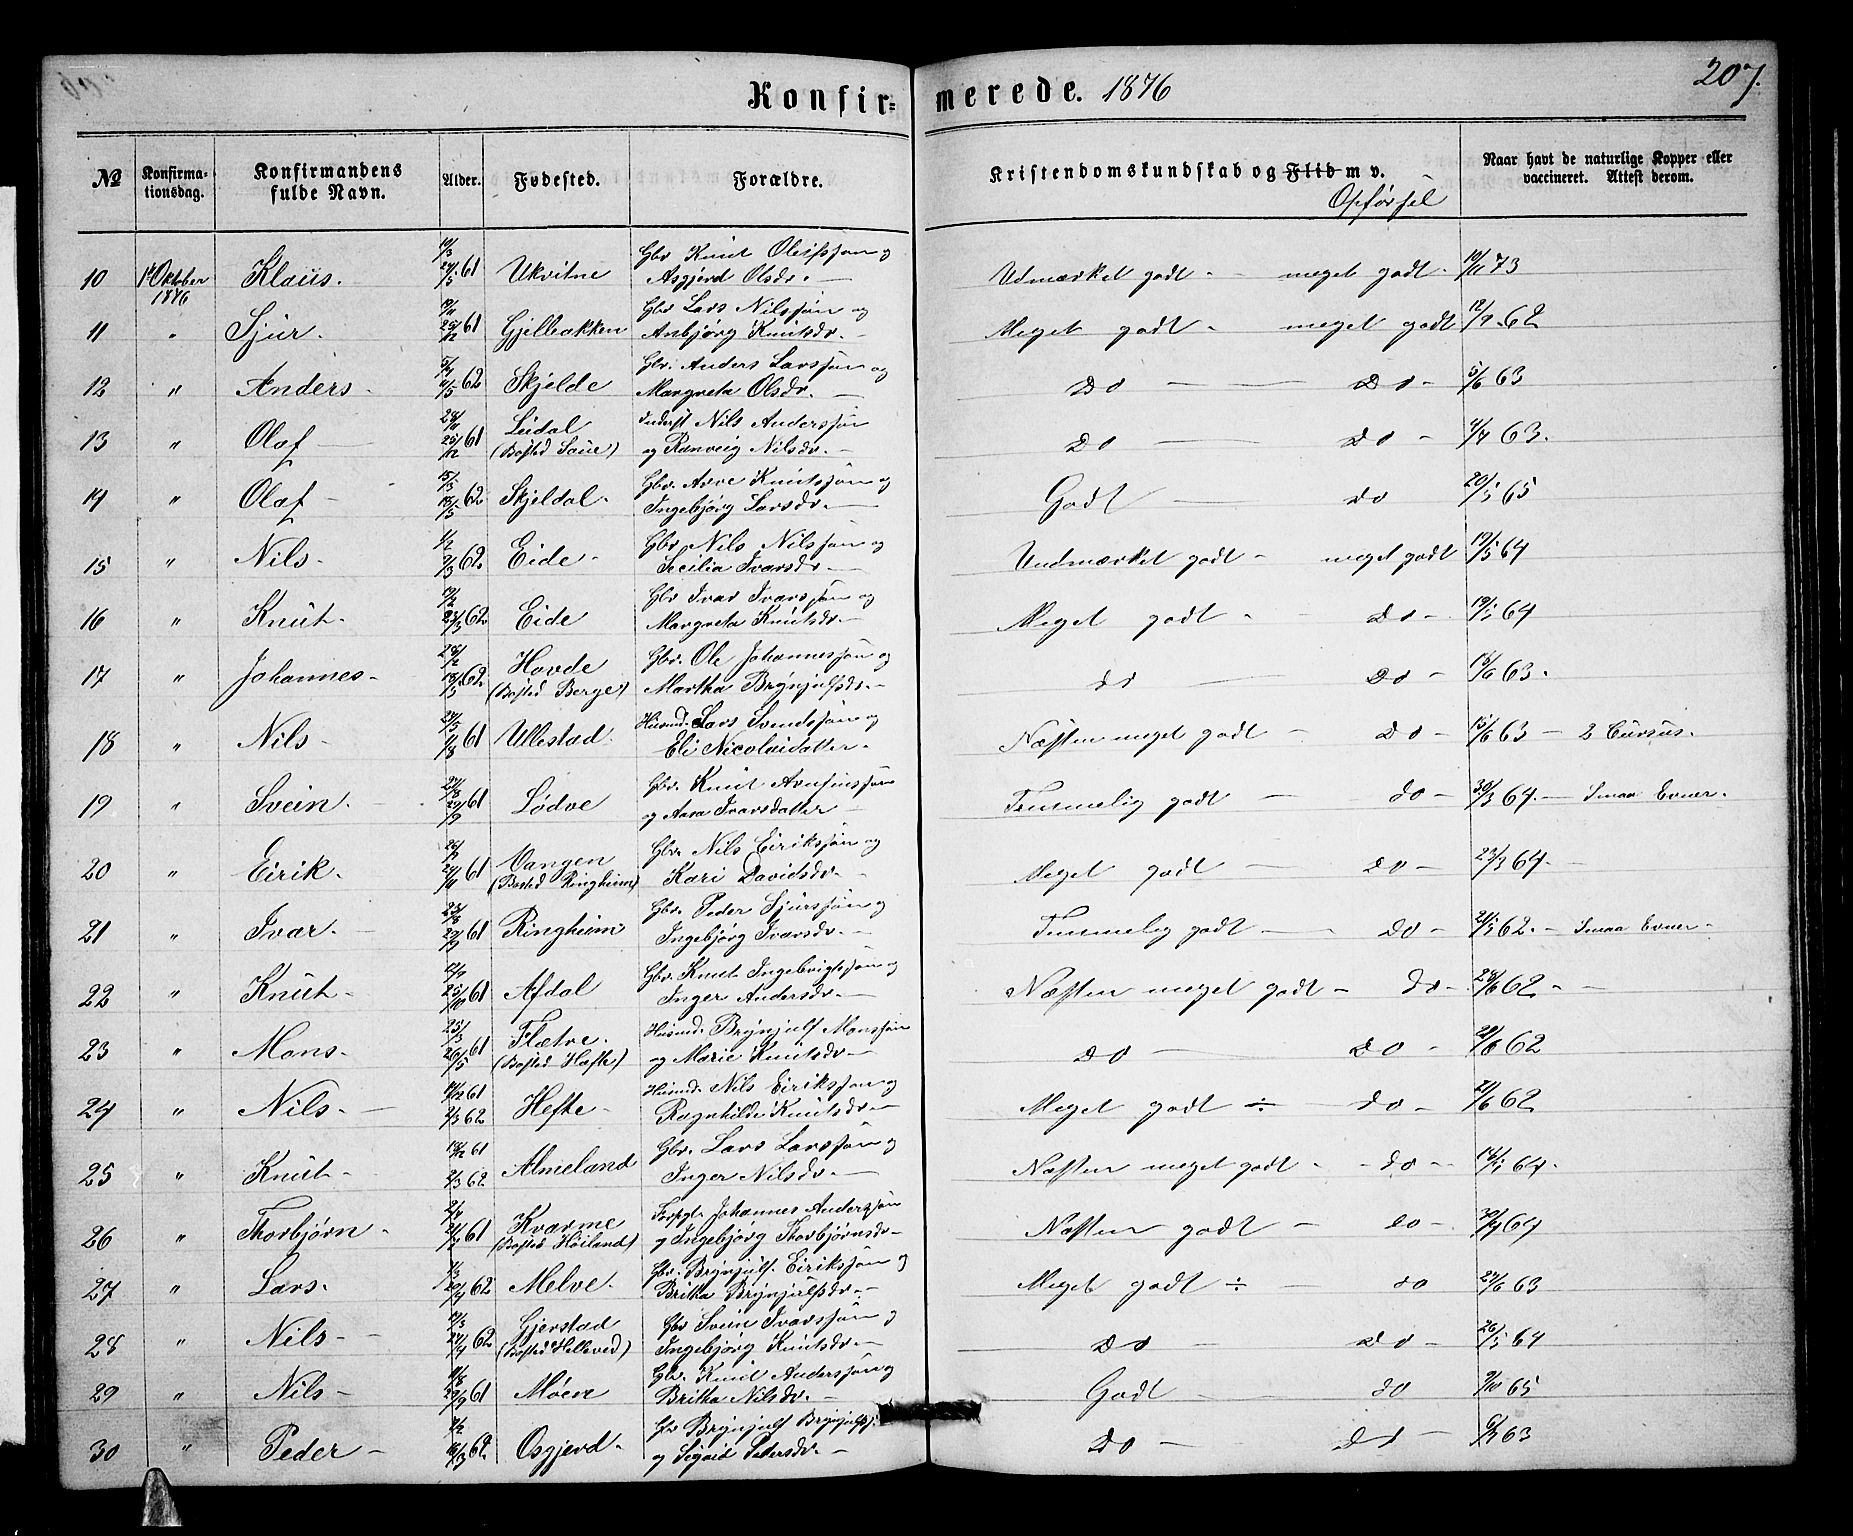 Konfirmerede. 1876
207.
№ Konfirmationsdag. Konfirmandens fulde Navn. Alder. Fødested. Forældre. Kristendomskundskab og Flid m v. Opførsel Naar havt de naturlige Kopper eller vaccineret. Attest derom.
10 1 Oktober 1876 Klaus. 61 Ukvitne Gbr Knut Oleifssøn og Asgjerd Olsdr. — Udmærket godt - meget godt. 73
11 " Sjur. 61 Gjelbakken Gbr Lars Nilssøn og Anbjørg Knutsdr. — Meget godt - meget godt 12/9 62
12 " Anders - 62 Skjelde Gbr. Anders Larssøn og Margreta Olsdr. — Do — Do - 5/6 63
13 " Olaf — 28/11 25/12 61 Lidal (Bosted Saue) Inderst Nils Anderssøn og Ranveig Nilsdr. — Do — Do - 63.
14 " Olaf - 62 Skjeldal - Gbr. Arve Knutssøn og Ingebjørg Larsdr. — Godt — Do 65
15 " Nils - 62 Eide - Gbr Nils Nilssøn og Secilia Ivarsdr — Uudmærket godt - meget godt 64
16 " Knut - 62 Eide Gbr Ivar Ivarssøn og Margreta Knutsdr — Meget godt - Do - 64
17 " Johannes - 62 Hovde (Bosted Berge) Gbr. Ole Johannessøn og Martha Brynjulfsdr. — do — Do - 63.
18 " Nils - 61 Ullestad Husmd. Lars Svendssøn og Eli Nicolaidatter - Næsten meget godt — Do - 15/6 63 — 2 Cursus.
19 " Svein. - 61 Lødve Gbr. Knut Arnfinssøn og Anna Ivarsdatter — Temmelig godt — do - 30/3 64. — Smaa Evner.
20 " Eirik. 61 Vangen (Bosted Ringheim) Gbr Nils Eirikssøn og Kari Davidsdr. — Meget godt — Do - 23/3 64. —
21 " Ivar. — 61 Ringheim Gbr. Peder Sjurssøn og Ingebjørg Ivarsdr. — Temmelig godt — Do - 62. — Smaa Evner -
22 " Knut - 61 Afdal Gbr. Knut Ingebrigtssøn og Inger Andersdr. — Næsten meget godt - do - 28/6 62 - —
23 " Mons - 61 Flætre. (Bosted Hæfte) Husmd. Brynjulf Monssøn og Marie Knutsdr — Do — Do - 62
24 " Nils. — 61 2/3 62 Hefte - Husmd. Nils Eirikssøn og Ragnhilde Knutsdr — Meget godt ÷ — do - 62
25 " Knut - 61 2/3 62 Almeland Gbr. Lars Larssøn og Inger Nilsdr — Næsten meget godt - - do - 64.
26 " Thorbjørn - 61 Kvarme (Bosted Høiland) Johannes Anderssøn og Ingebjørg Thorbjørnsdr - Næsten godt — do - 64
27 " Lars. 62 Melve. Gbr. Brynjulf Eirikssøn og Britha Brynjulfsdr. — Meget godt ÷ — do 63
28 " Nils - - 62 Gjerstad (Bosted Helleved) Gbr Svein Ivarssøn og Ingebjørg Knutsdr. — Do — Do - 26/5 64
29 " Nils - 61 Møen Gbr. Knut Anderssøn og Britha Nilsdr. — Godt — do 9/10 65
30 " Peder - 62. Osgjerd. Gbr Brynjulf Brynjulfss. og Sigrid Pedersdr. — Do — Do - 63